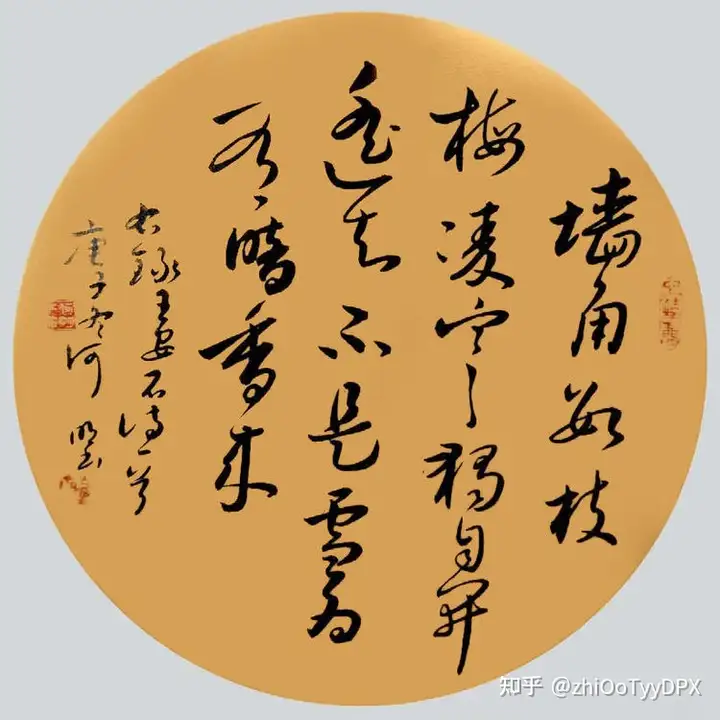 墙角数枝
梅凌寒独自开
遥知不是雪为
有暗香来
右录王安石诗一首
庚子冬何
知乎 @zhiOoTyyDPX